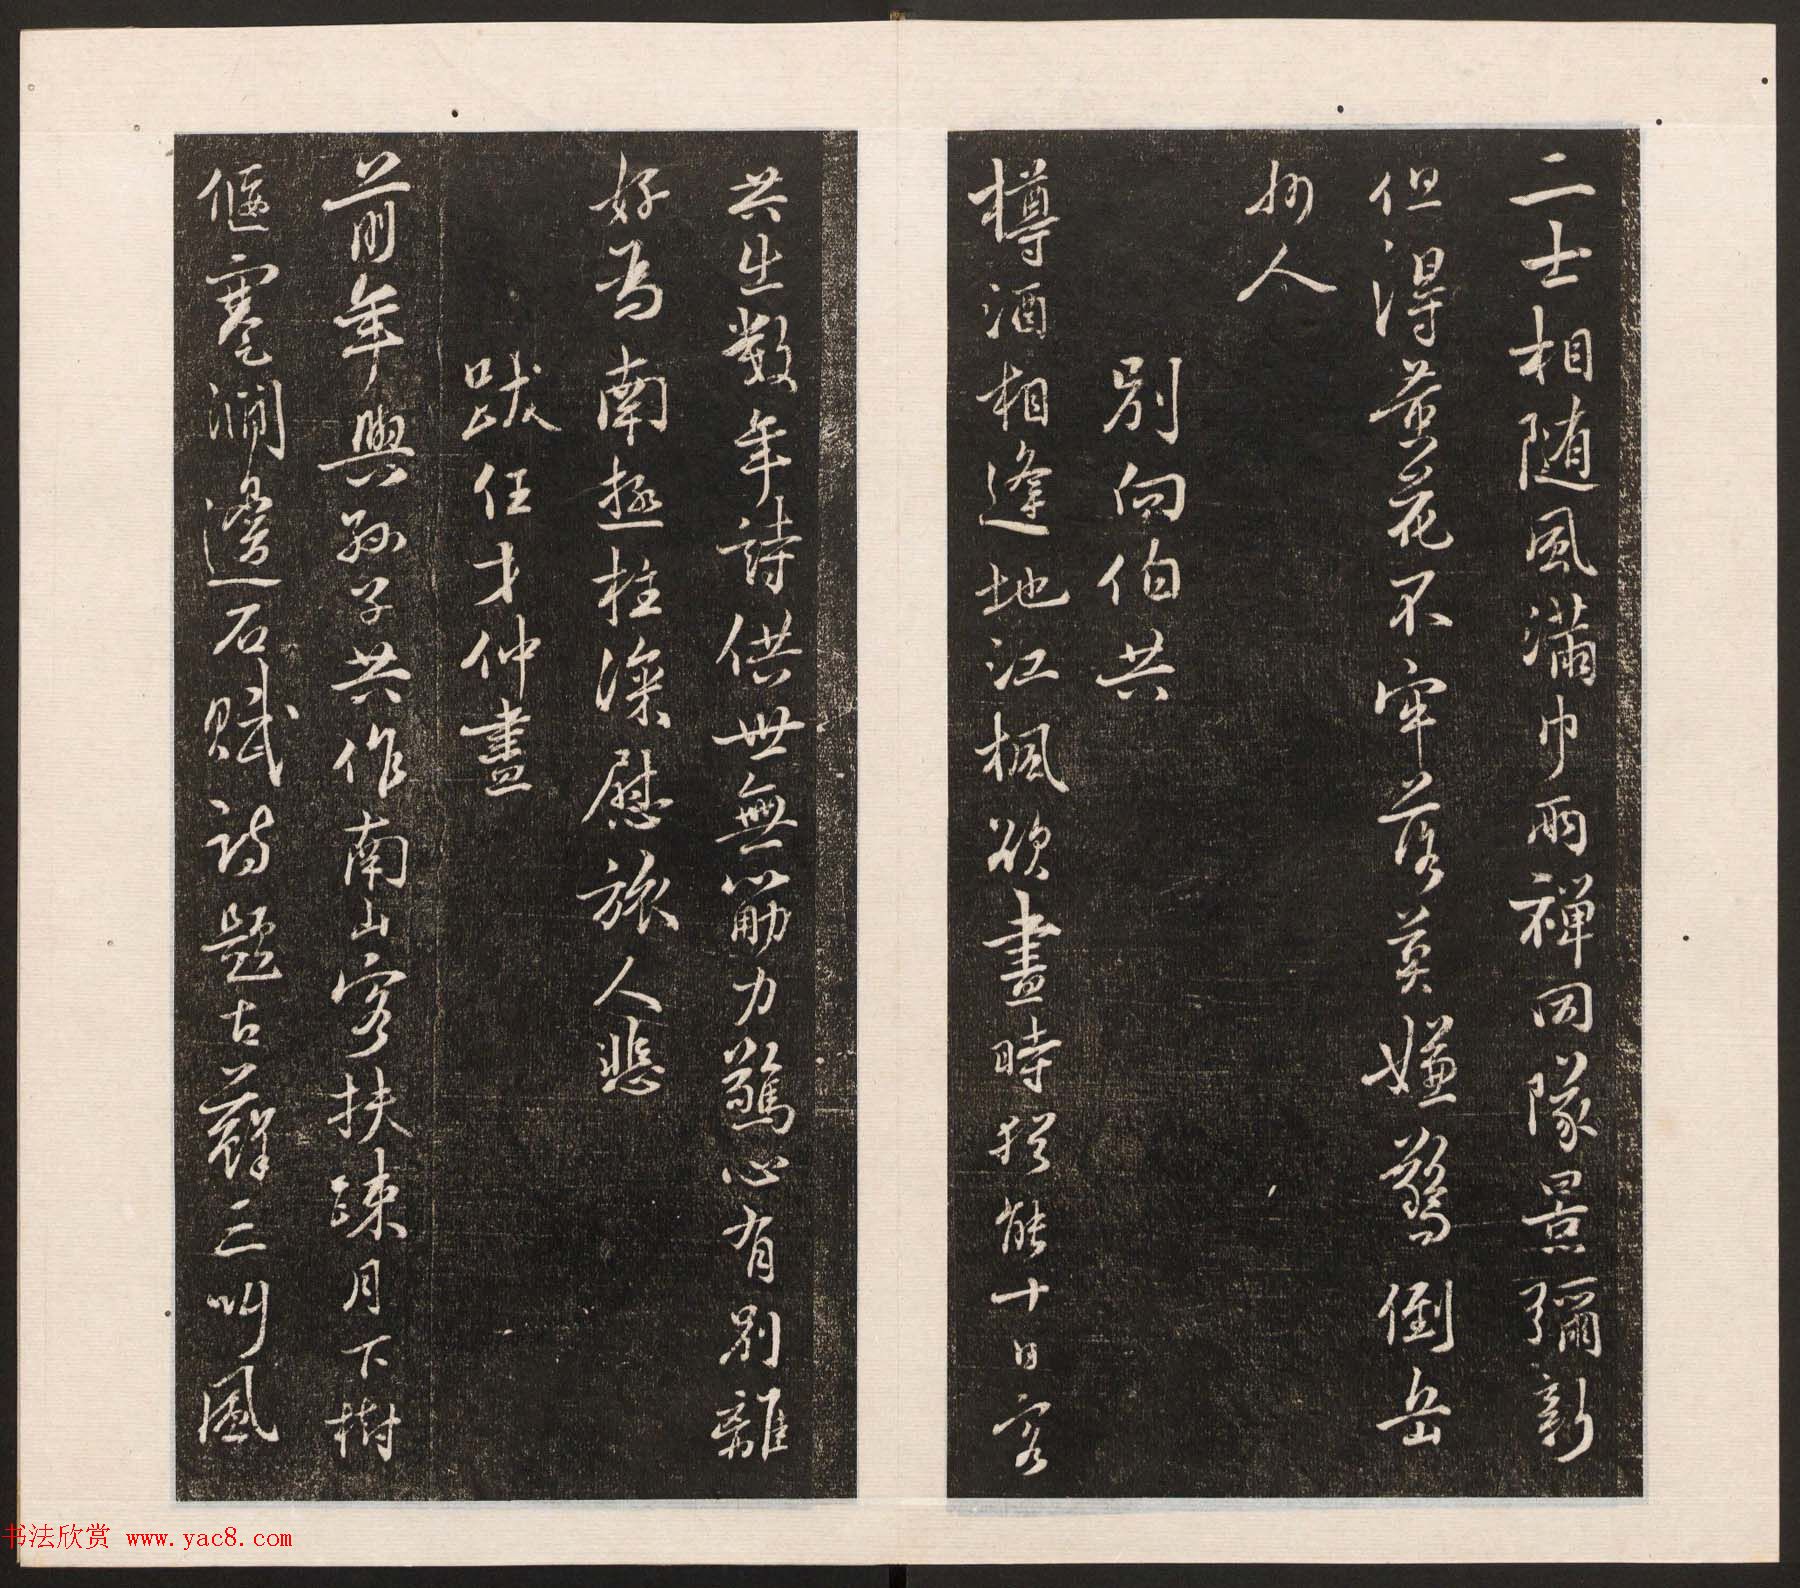 二士相随風滿巾雨禪同隊景彌新
但得黃花不牢落莫嫌驚倒岳
州人
別向伯共
樽酒相逢地江楓欲盡時猶能十日客
共出數年詩供世無筋力驚心有別離
好為南極柱深慰旅人悲
跋任才仲畫
前年與孫子共作南山客扶疎月下樹
偃蹇澗邊石賦詩題古蘚三叫風
书法欣赏 www.yac8.com